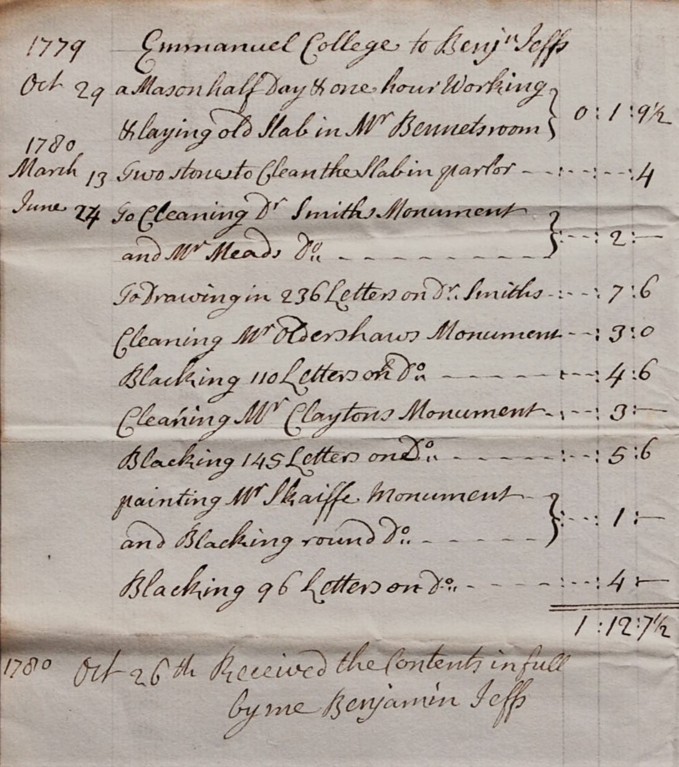 1779 Emmanuel College to Benjn Jeffs
Oct 29 a Mason half Day & one hour Working
& laying old Slab in Mr Bennets room } 0 : 1 : 9½
1780
March 13 Two stones to Clean the Slab in parlor - - : - - : - - : 4
June 24 To Cleaning Dr Smiths Monument
and Mr Meads Do. - - - - - } : - - : 2 : —
To Drawing in 236 Letters on Dr. Smiths - - : - - : 7 : 6
Cleaning Mr Oldershaws Monument - - : 3 : 0
Blacking 110 Letters on Do. - - - - - : - - : 4 : 6
Cleaning Mr Claytons Monument - - : - - : 3 : —
Blacking 145 Letters on Do. - - - - : - - : 5 : 6
painting Mr Skaiffe Monument
and Blacking round Do. - - - - - } : - - : 1 : —
Blacking 96 Letters on Do. - - - - - : - - : 4 : —
1 : 12 : 7½
1780 Oct 26th Received the Contents in full
by me Benjamin Jeffs